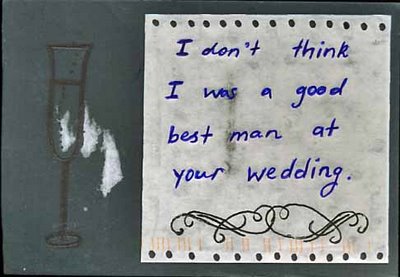 I don't think
I was a good
best man at
your wedding.